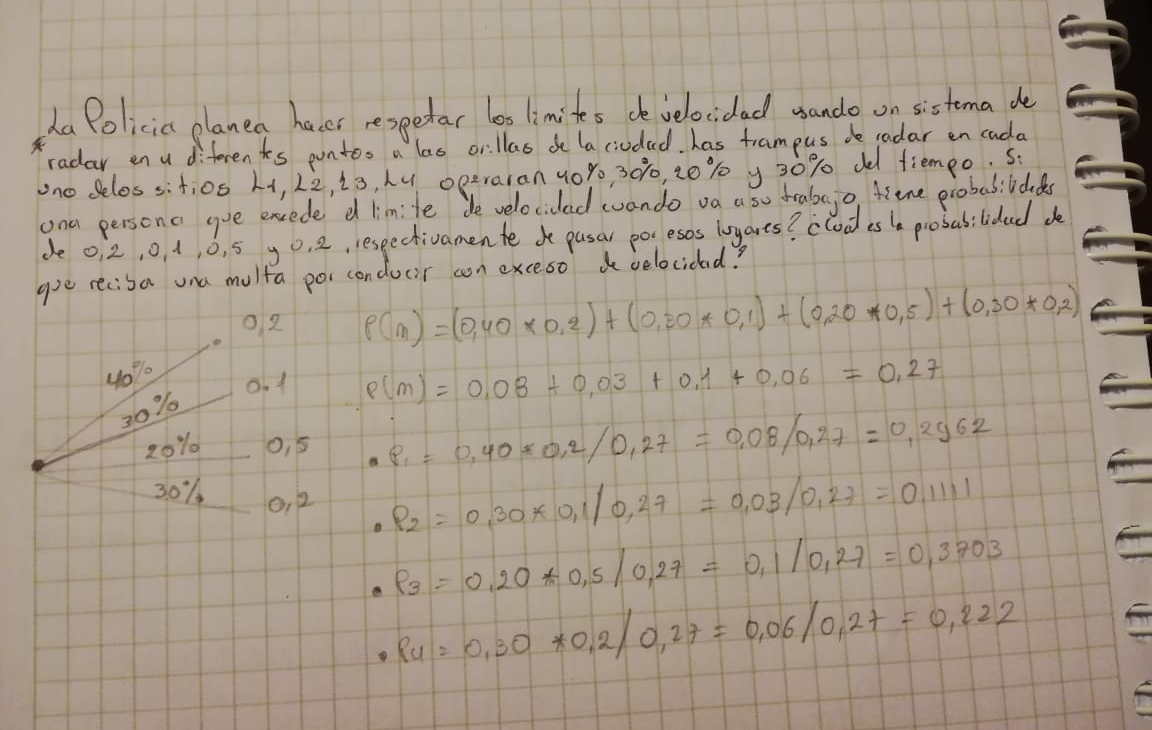 * La Policia planea hacer respetar los limites de velocidad usando un sistema de
radar en 4 diferentes puntos a las orillas de la ciudad. Las trampas de radar en cada
uno de los sitios L1, L2, L3, L4 operaran 40%, 30%, 20% y 30% del tiempo. Si
una persona que excede el limite de velocidad cuando va a su trabajo, tiene probabilidades
de 0,2, 0,1, 0,5 y 0,2, respectivamente de pasar por esos lugares? ¿Cual es la probabilidad de
que reciba una multa por conducir con exceso de velocidad?
40% 0,2
30% 0.1
20% 0,5
30% 0,2
P(m) = (0,40 * 0,2) + (0,30 * 0,1) + (0,20 * 0,5) + (0,30 * 0,2)
P(m) = 0,08 + 0,03 + 0,1 + 0,06 = 0,27
• P1 = 0,40 * 0,2/0,27 = 0,08/0,27 = 0,2962
• P2 = 0,30 * 0,1/0,27 = 0,03/0,27 = 0,1111
• P3 = 0,20 * 0,5/0,27 = 0,1/0,27 = 0,3703
• P4 = 0,30 * 0,2/0,27 = 0,06/0,27 = 0,222